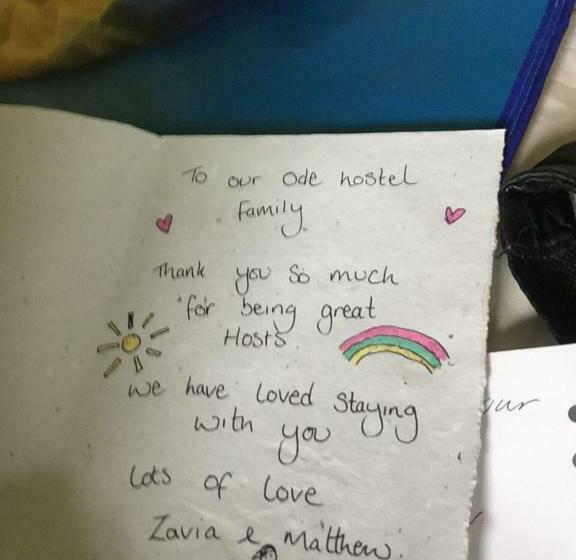 To our Ode hostel
family.
Thank you so much
for being great
Hosts.
We have loved staying
with you
Lots of love
Zavia & Matthew.